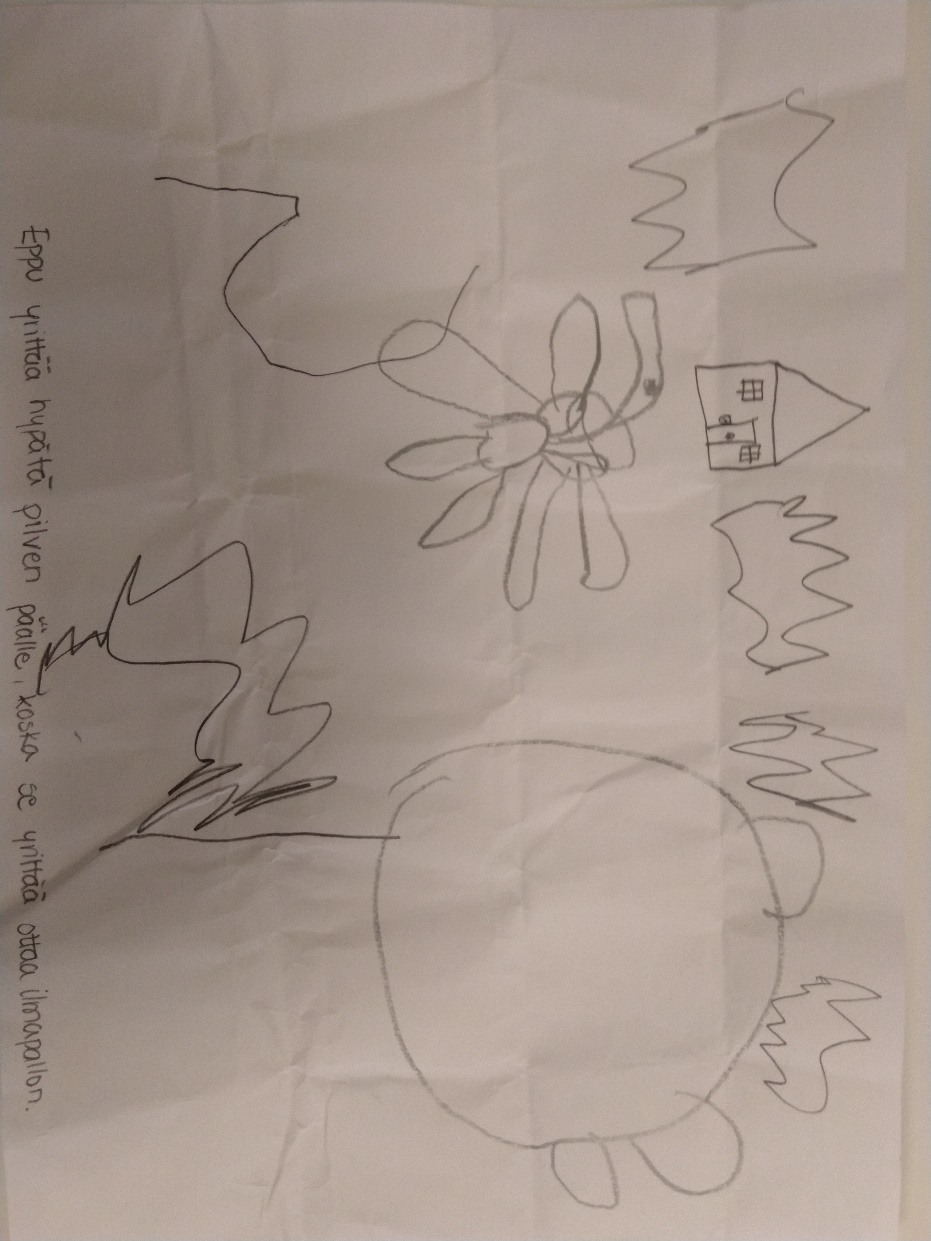 Eppu yrittää hypätä pilven päälle, koska se yrittää ottaa ilmapallon.